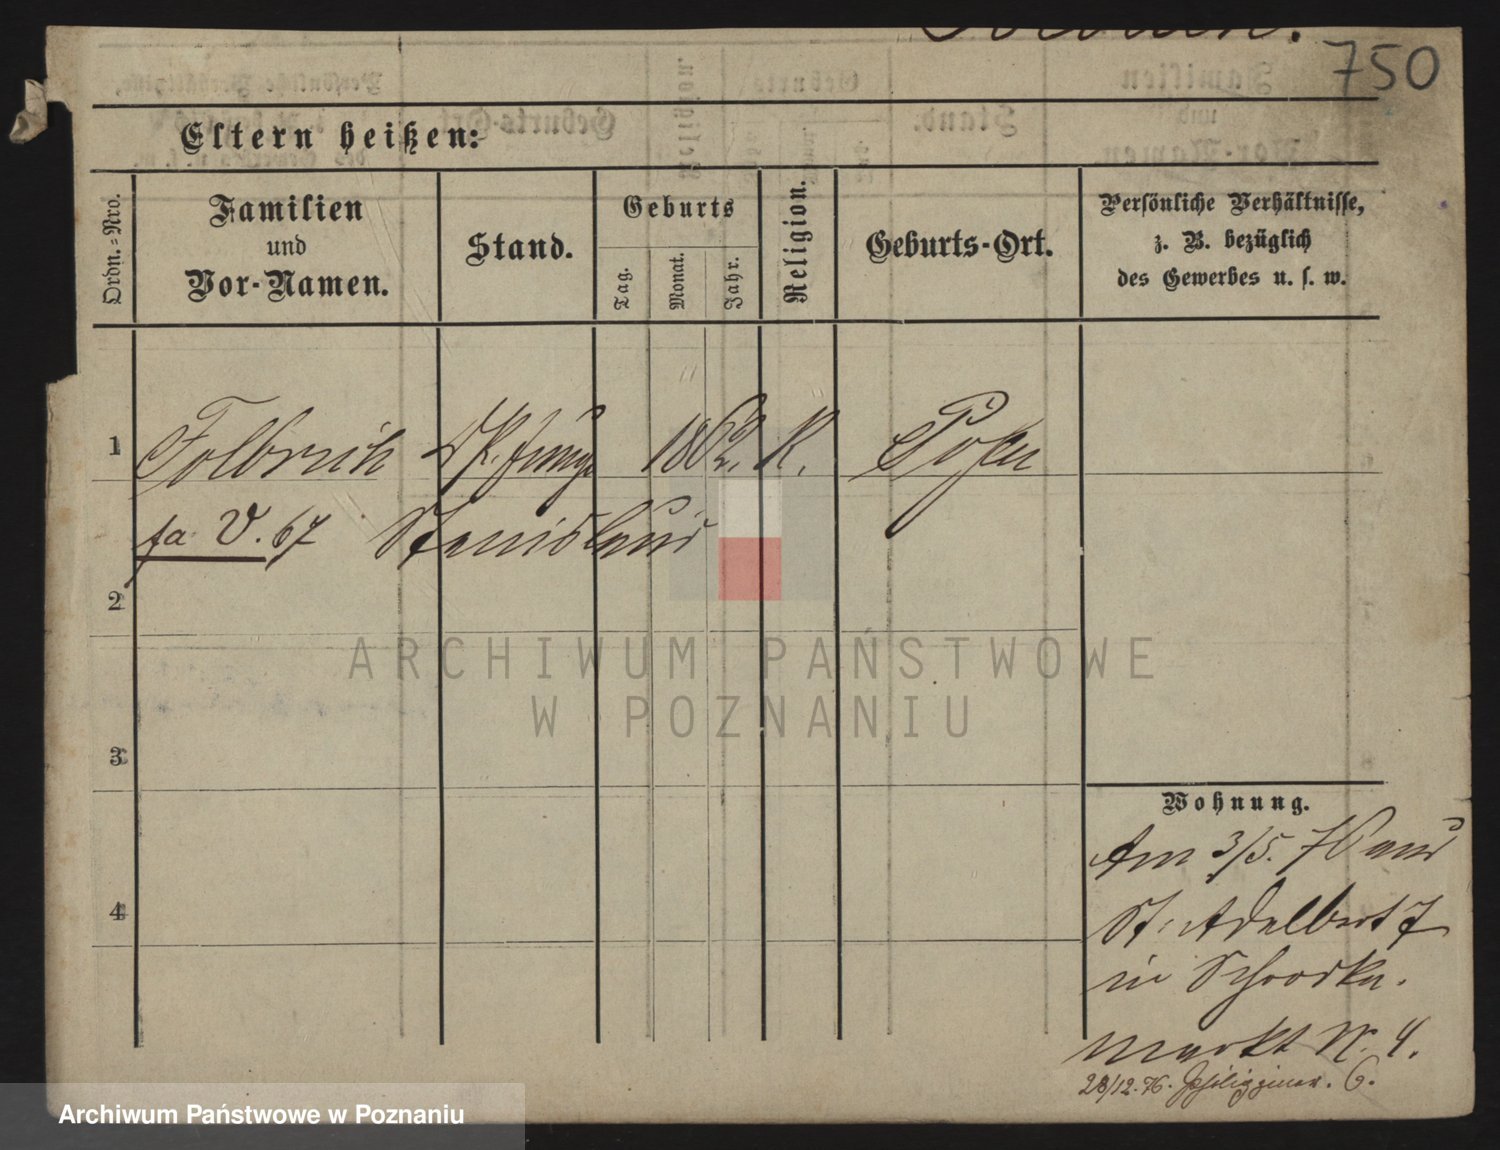 750
Eltern heißen:
Ordn.=Nro.
Familien
und
Vor-Namen.
Stand.
Geburts
Tag.
Monat.
Jahr.
Religion.
Geburts-Ort.
Persönliche Verhältnisse,
z. B. bezüglich
des Gewerbes u. s. w.
1 1862. K. Posen
fa V. 67 Stanislaus
2
3
4
Wohnung.
Am 3/5. 76 aus
St. Adelbert 7
in Schrodka.
markt N. 4.
28/12. 76. 6.
ARCHIWUM PAŃSTWOWE
W POZNANIU
Archiwum Państwowe w Poznaniu